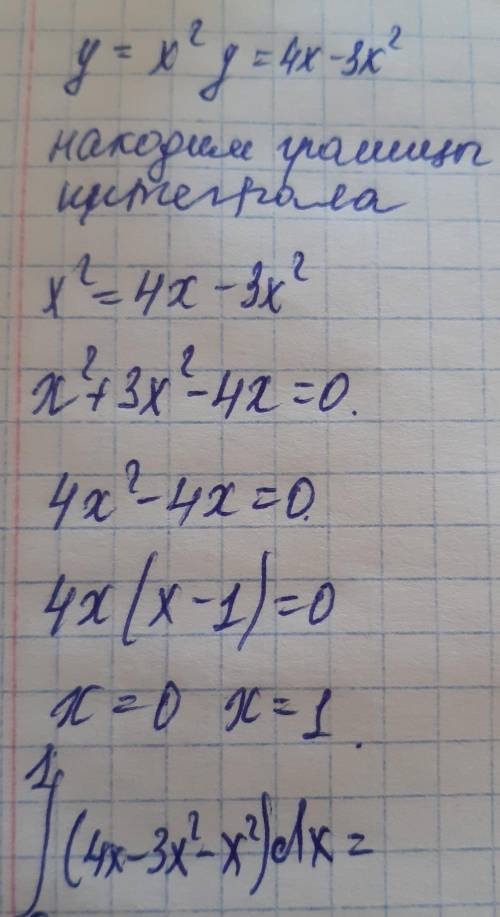 y = x² y = 4x - 3x²
находим границы
интеграла
x² = 4x - 3x²
x² + 3x² - 4x = 0.
4x² - 4x = 0.
4x(x - 1) = 0
x = 0 x = 1.
1
∫(4x - 3x² - x²)dx =